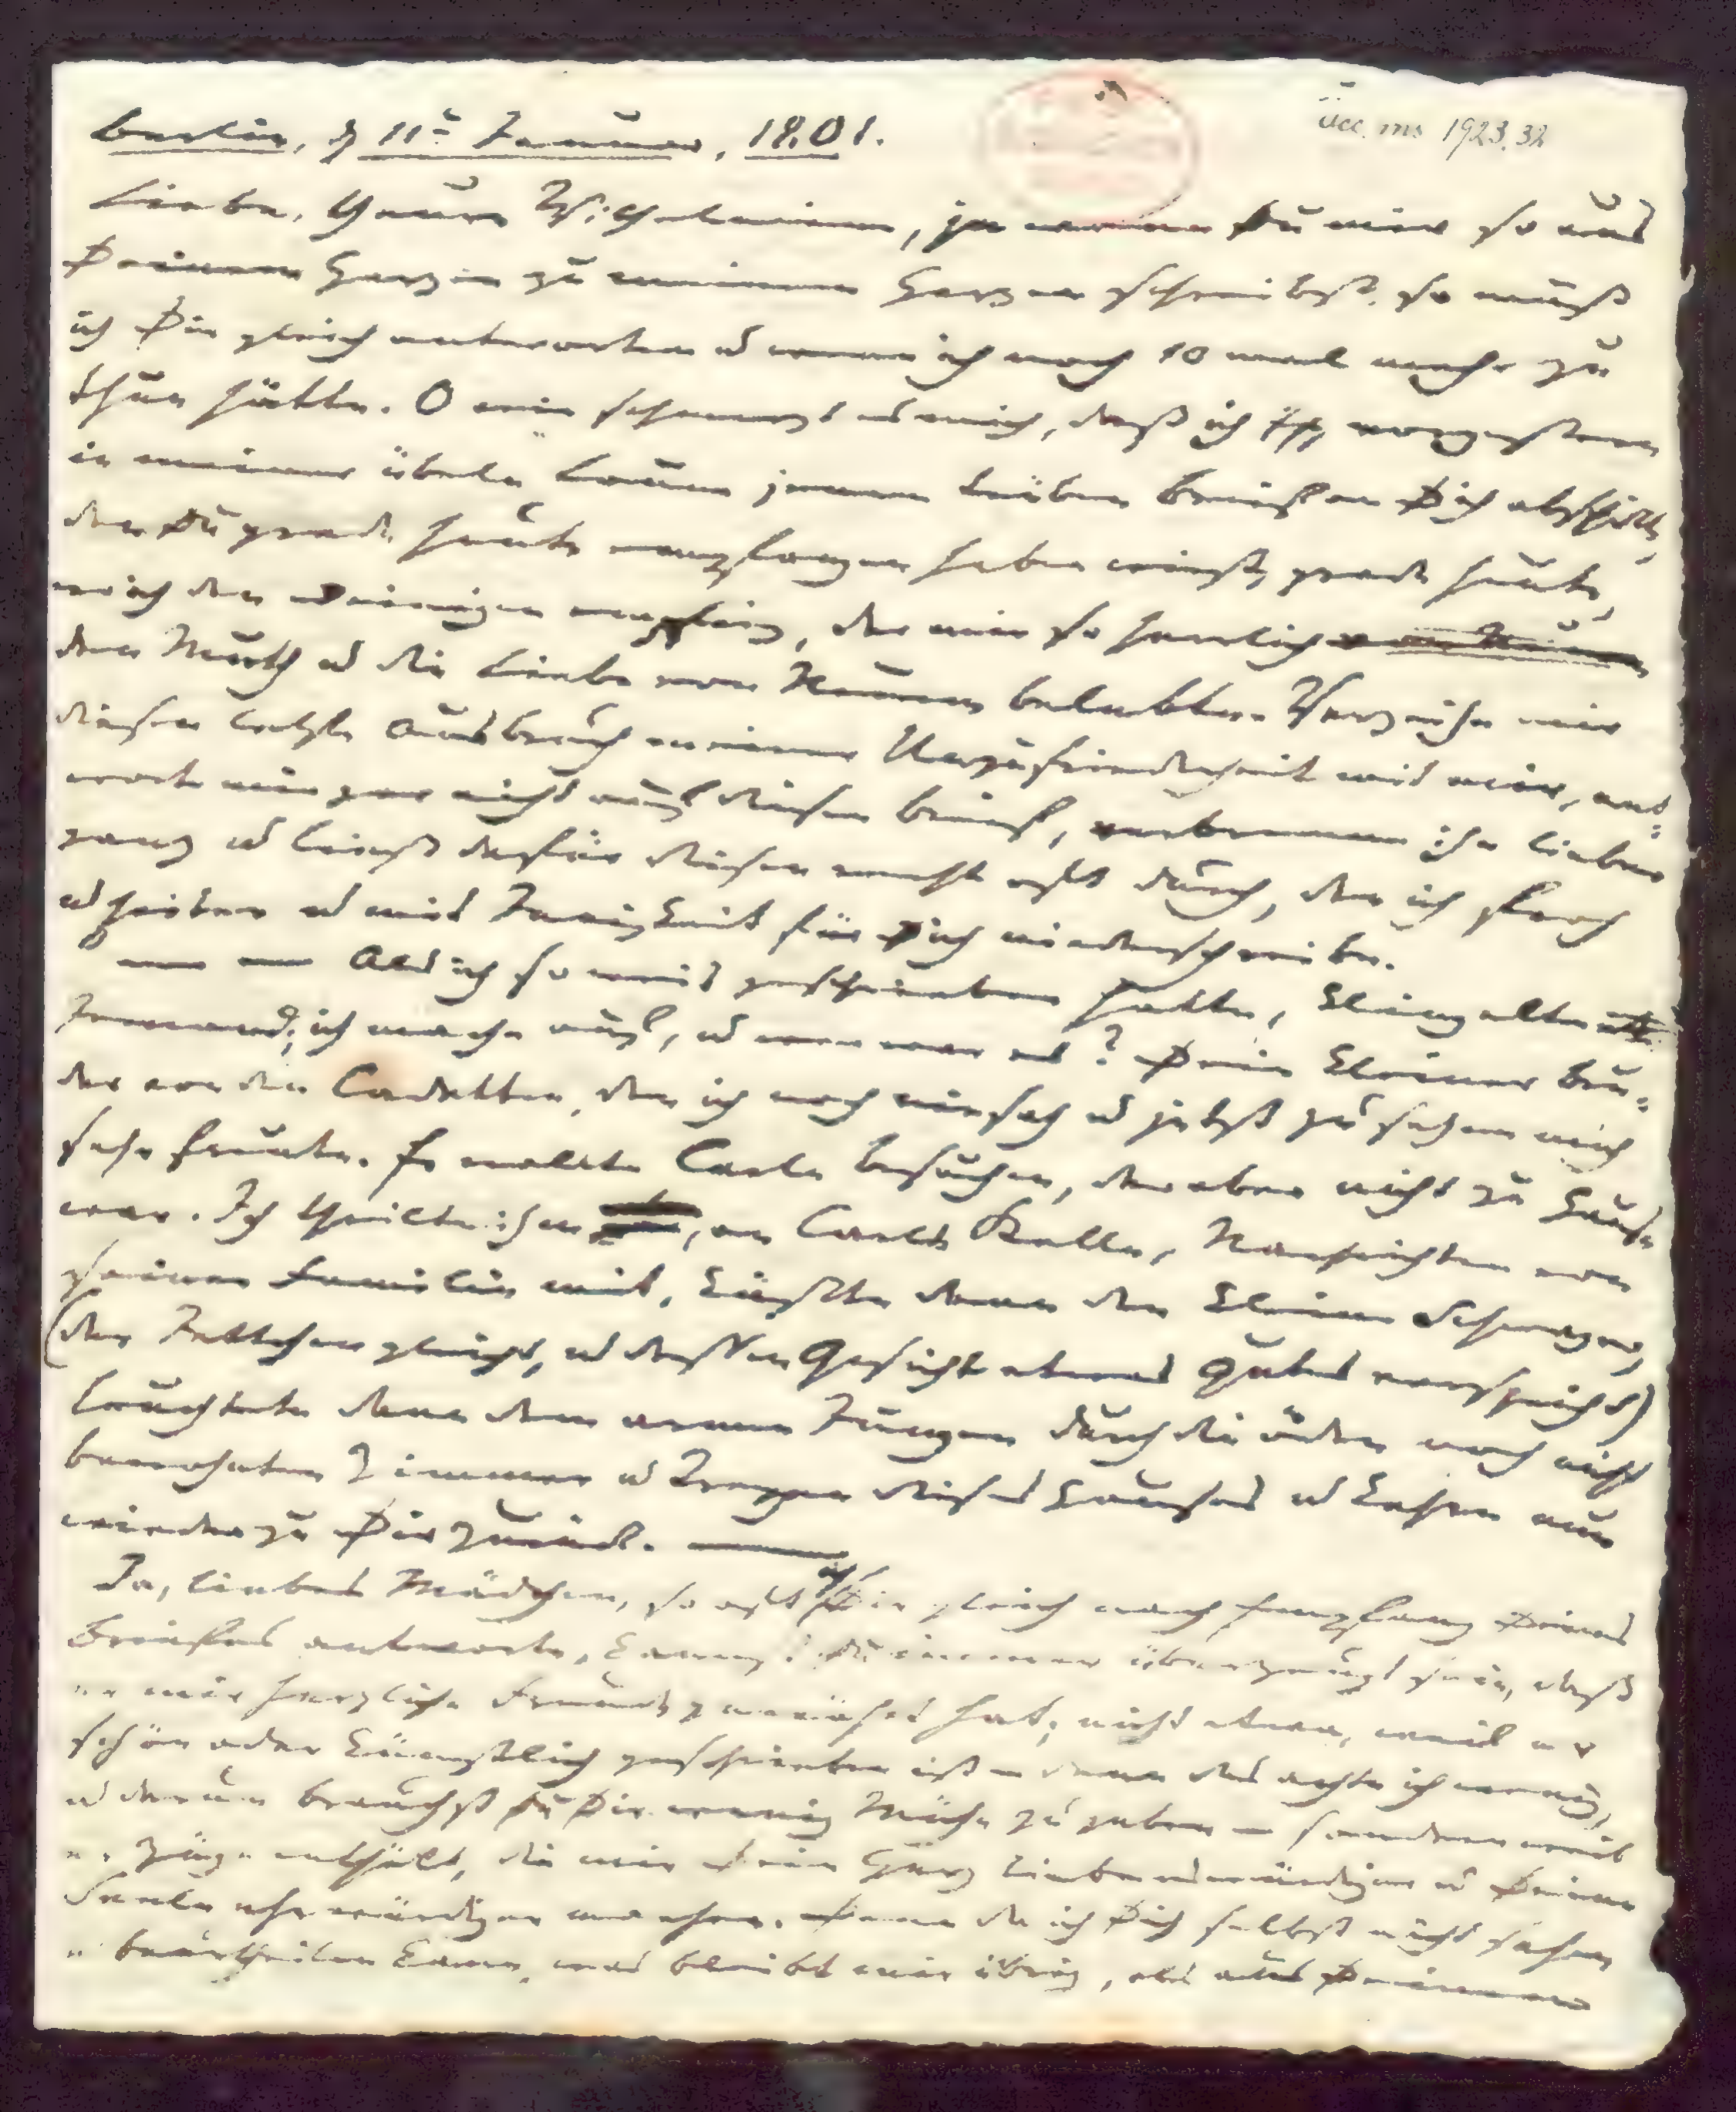 acc. ms 1923.32
Berlin, d 11t Januar, 1801.
Liebe, theure Wilhelmine, ja wenn Du mir so aus
Deinem Herzen zu meinem Herzen schreibst, so muß
ich Dir gleich antworten u wenn ich noch 10 mal mehr zu
thun hätte. O wie schmerzt es mich, daß ich vorgestern
in meiner übeln Laune jenen trüben Brief an Dich abschickte,
den Du grade heute empfangen haben wirst, grade heute,
wo ich den Deinigen empfing, der mir so herrlich
den Muth u die Liebe von Neuem belebte. Verzeihe mir
diesen letzten Ausbruch meiner Unzufriedenheit mit mir, ant-
worte mir gar nicht auf diesen Brief, verbrenne ihn lieber
ganz u ließ dafür diesen recht oft durch, den ich froh
u heiter u mit Innigkeit für Dich niederschreibe.
Als ich so weit geschrieben hatte, klingelte
Jemand; ich mache auf, u wer war es? Dein kleiner Bru-
der von den Cadetten, den ich noch nie sah u jetzt zu sehen mich
sehr freute. Er wollte Carln besuchen, der aber nicht zu Hause
war. Ich theilte ihm, an Carls Stelle, Nachrichten von
seiner Familie mit, küßte dann den kleinen Schwager,
(der Jettchen gleicht, u dessen Gesicht etwas Gutes verspricht)
leuchtete dann dem armen Jungen durch die öden noch nicht
bewohnten Zimmer u Treppen dieses Hauses u kehre nun
wieder zu Dir zurück. —
Ja, liebes Mädchen, so oft ich Dir gleich nach Empfang Deines
Briefes antworte, kannst Du immer überzeugt sein, daß
er mir herzliche Freude gewährt hat; nicht etwa, weil er
schön oder künstlich geschrieben ist — denn das achte ich wenig,
u darum brauchst Du Dir wenig Mühe zu geben — sondern weil
er Züge enthält, die mir Dein Herz liebenswürdiger u Deine
Seele ehrwürdiger machen. Denn da ich Dich selbst nicht sehen
u beurtheilen kann, was bleibt mir übrig, als aus Deinen